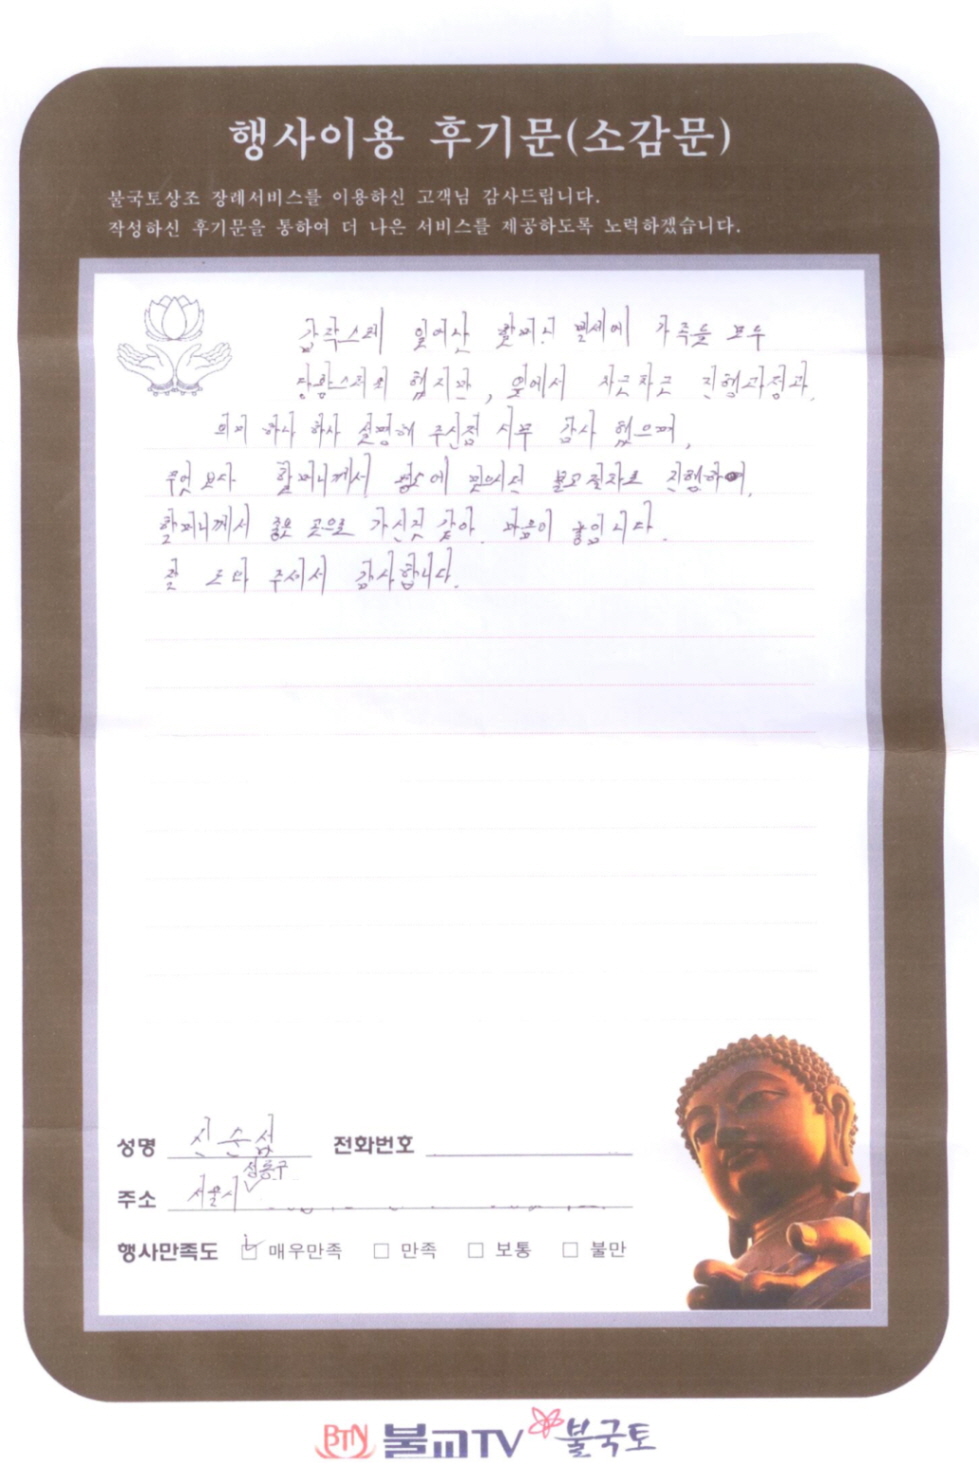 행사이용 후기문(소감문)
불국토상조 장례서비스를 이용하신 고객님 감사드립니다.
작성하신 후기문을 통하여 더 나은 서비스를 제공하도록 노력하겠습니다.
갑작스레 일어난 할머니 별세에 가족들 모두
당황스러워 했지만, 옆에서 차근차근 진행과정과
의미 하나 하나 설명해 주신점 너무 감사 했으며,
무엇 보다 할머니께서 평소에 믿으시던 불교절차로 진행하여,
할머니께서 좋은 곳으로 가신것 같아 마음이 놓입니다.
잘 도와 주셔서 감사합니다.
성명 신순섭 전화번호
성동구
주소 서울시
행사만족도 매우만족 만족 보통 불만
BTN 불교TV 불국토